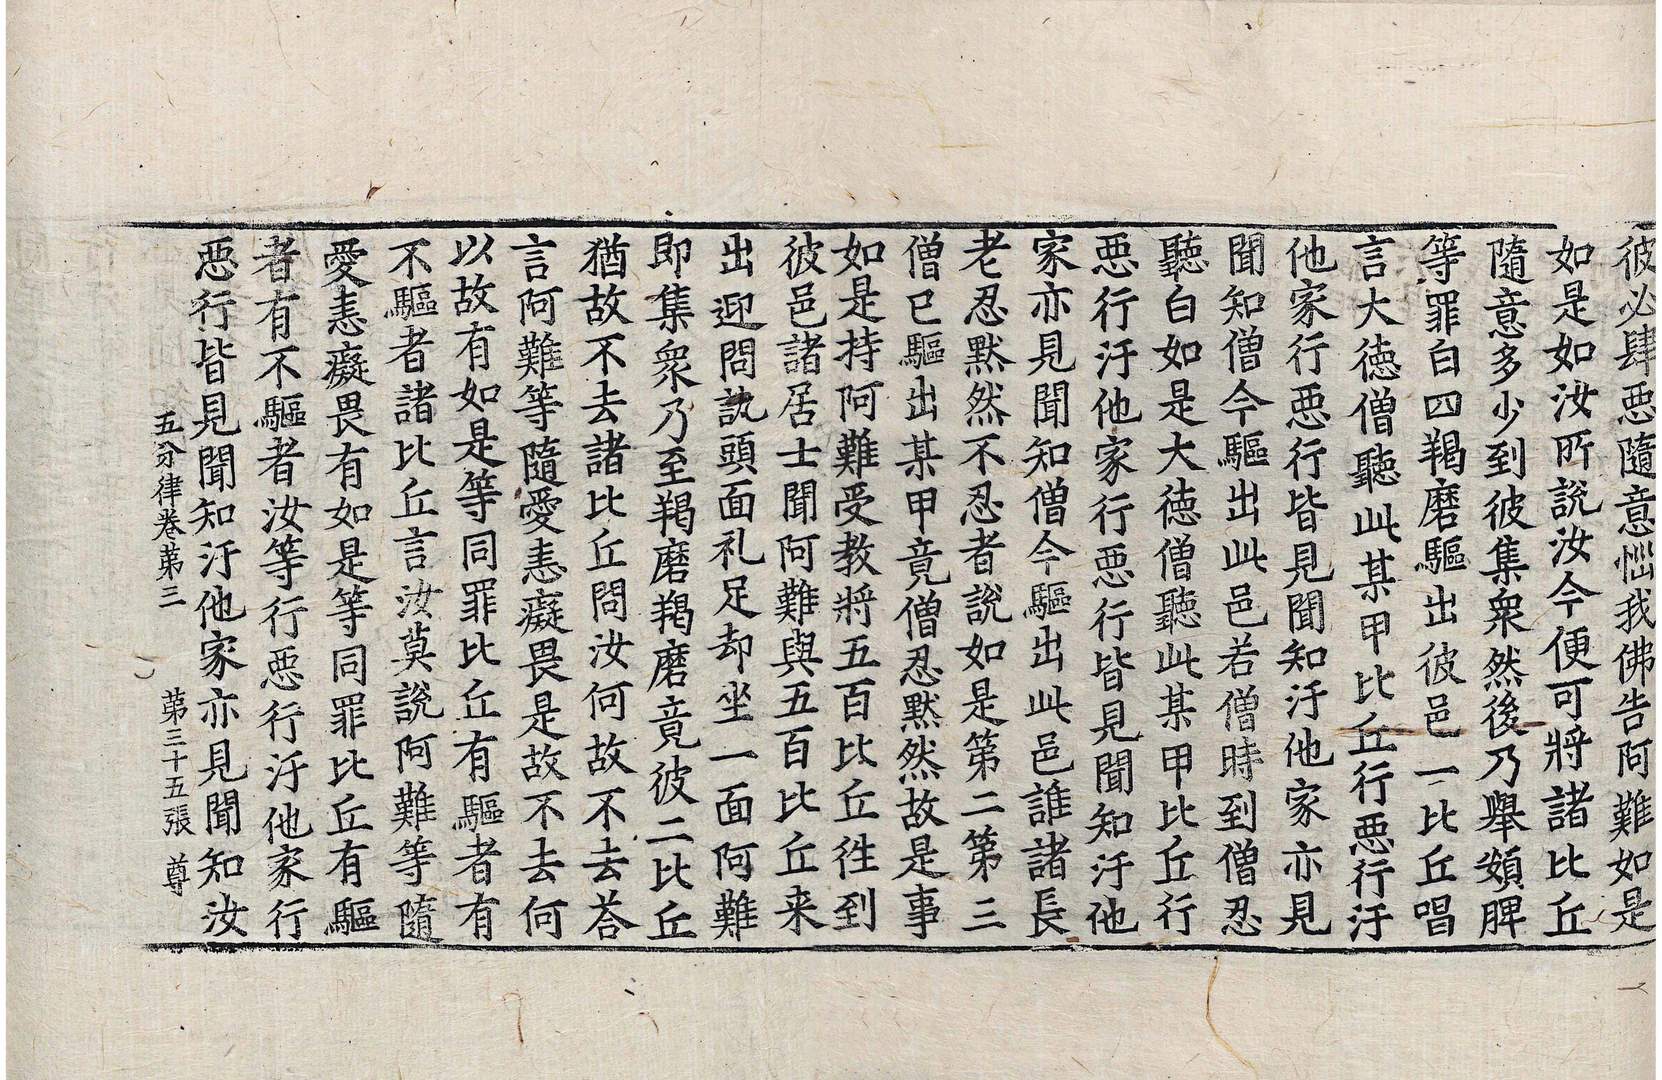 彼必肆惡隨意惱我佛告阿難如是
如是如汝所說汝今便可將諸比丘
隨意多少到彼集衆然後乃舉頞脾
等罪白四羯磨驅出彼邑一比丘唱
言大徳僧聽此某甲比丘行惡行汙
他家行惡行皆見聞知汙他家亦見
聞知僧今驅出此邑若僧時到僧忍
聽白如是大徳僧聽此某甲比丘行
惡行汙他家行惡行皆見聞知汙他
家亦見聞知僧今驅出此邑誰諸長
老忍默然不忍者說如是第二第三
僧已驅出某甲竟僧忍默然故是事
如是持阿難受教將五百比丘徃到
彼邑諸居士聞阿難與五百比丘来
出迎問訊頭面礼足却坐一面阿難
即集衆乃至羯磨羯磨竟彼二比丘
猶故不去諸比丘問汝何故不去荅
言阿難等隨愛恚癡畏是故不去何
以故有如是等同罪比丘有驅者有
不驅者諸比丘言汝莫說阿難等隨
愛恚癡畏有如是等同罪比丘有驅
者有不驅者汝等行惡行汙他家行
惡行皆見聞知汙他家亦見聞知汝
五分律卷第三 第三十五張 尊